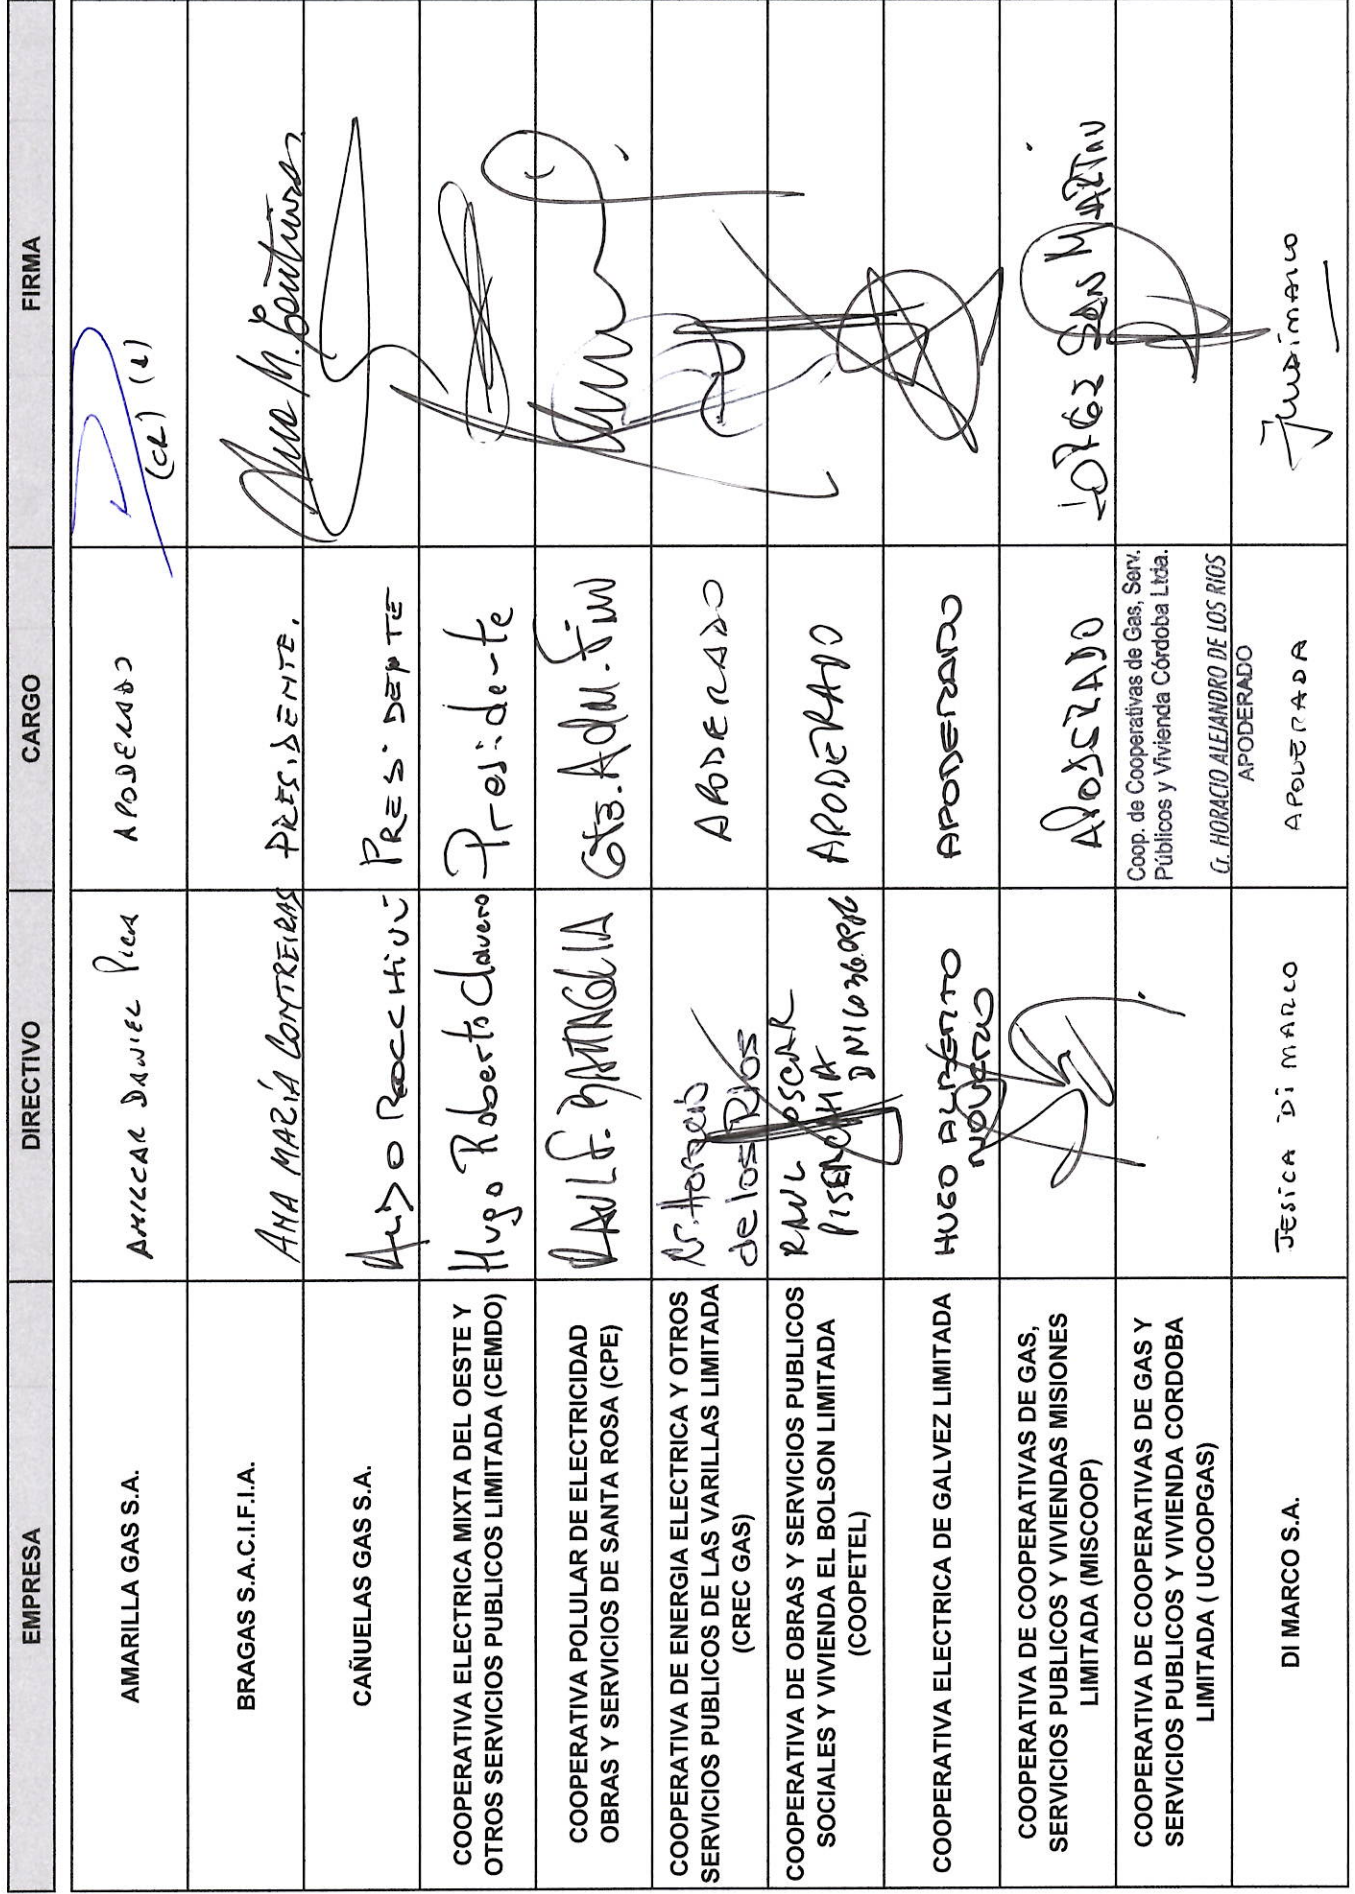 EMPRESA
DIRECTIVO
CARGO
FIRMA
AMARILLA GAS S.A.
AMILCAR DANIEL
APODERADO
BRAGAS S.A.C.I.F.I.A.
ANA MARÍA CONTRERAS
PRESIDENTE.
Ana M. Contreras
CAÑUELAS GAS S.A.
PRESIDENTE
COOPERATIVA ELECTRICA MIXTA DEL OESTE Y
OTROS SERVICIOS PUBLICOS LIMITADA (CEMDO)
Hugo Roberto Clavero
Presidente
COOPERATIVA POLULAR DE ELECTRICIDAD
OBRAS Y SERVICIOS DE SANTA ROSA (CPE)
RAUL F. BATTAGLIA
Adm. Fin
COOPERATIVA DE ENERGIA ELECTRICA Y OTROS
SERVICIOS PUBLICOS DE LAS VARILLAS LIMITADA
(CREC GAS)
Cr. Horacio
de los Rios
APODERADO
COOPERATIVA DE OBRAS Y SERVICIOS PUBLICOS
SOCIALES Y VIVIENDA EL BOLSON LIMITADA
(COOPETEL)
RAUL OSCAR
APODERADO
COOPERATIVA ELECTRICA DE GALVEZ LIMITADA
HUGO ALBERTO
APODERADO
COOPERATIVA DE COOPERATIVAS DE GAS,
SERVICIOS PUBLICOS Y VIVIENDAS MISIONES
LIMITADA (MISCOOP)
APODERADO
JORGE SAN MARTIN
COOPERATIVA DE COOPERATIVAS DE GAS Y
SERVICIOS PUBLICOS Y VIVIENDA CORDOBA
LIMITADA ( UCOOPGAS)
Coop. de Cooperativas de Gas, Serv.
Públicos y Vivienda Córdoba Ltda.
Cr. HORACIO ALEJANDRO DE LOS RIOS
APODERADO
DI MARCO S.A.
JESICA DI MARCO
APODERADA